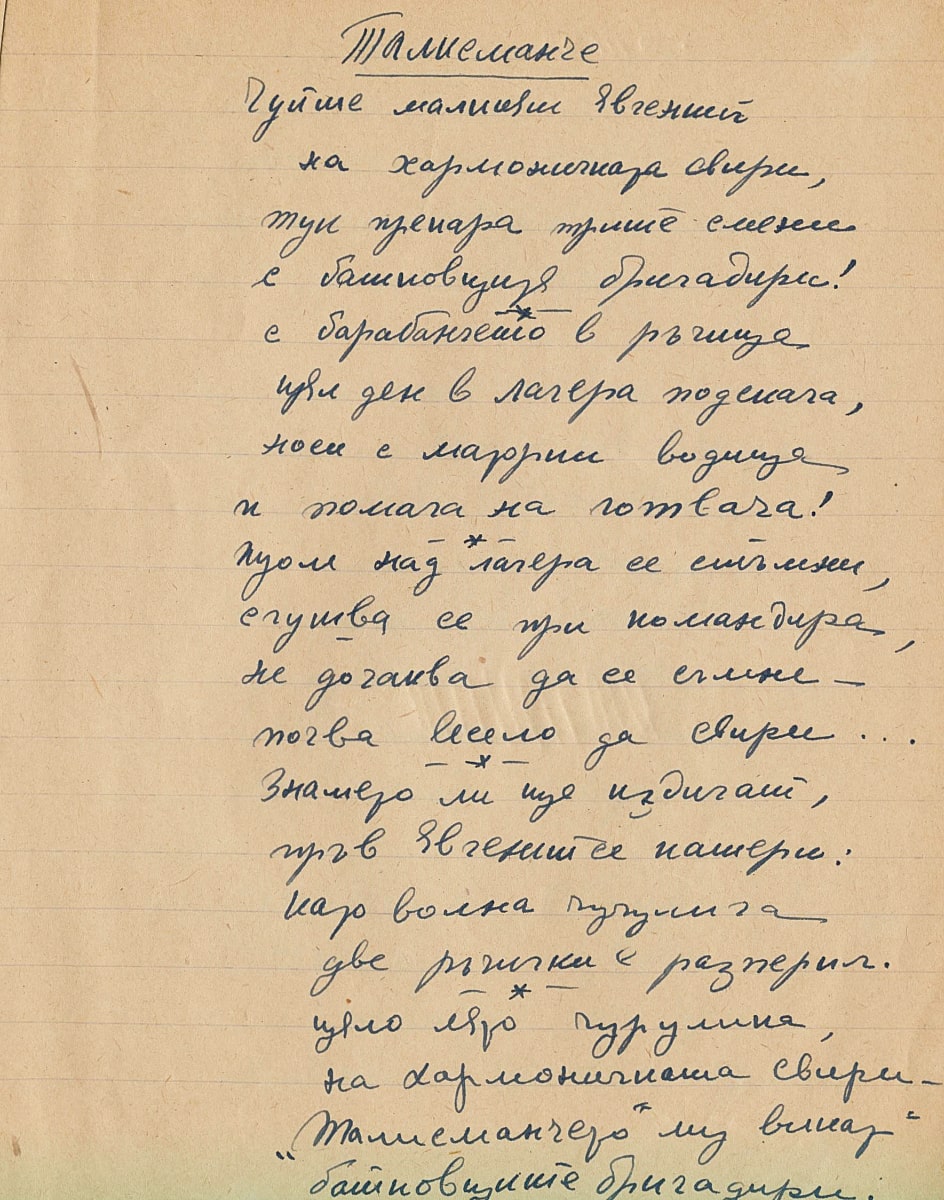 Талисманче
Чуйте малкият Евгений
на хармоничката свири,
тук прекара трите смени
с батковците бригадири!
— * —
с барабанчето в ръчица
цял ден в лагера подскача,
носи с Маррии водица
и помага на готвача!
— * —
Щом над лагера се стъмни,
сгушва се при командира,
не дочаква да се съмне —
почва весело да свири ...
— * —
Знамето ли ще издигат,
пръв Евгений се катери:
като волна чучулига
две ръчички е разперил.
— * —
цяло лято чурулика,
на хармоничката свири —
„Талисманчето" му викат"
батковците бригадири